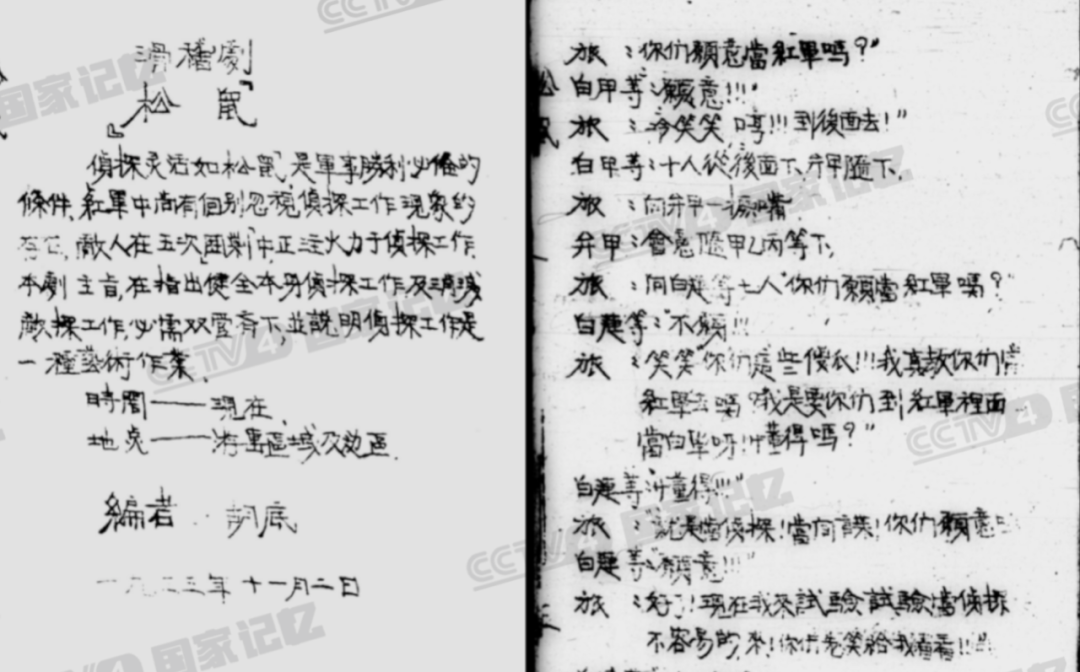 滑稽劇
『松鼠』
偵探灵活如松鼠,是軍事勝利必備的
條件,紅軍中尚有個别忽視偵探工作現象的
存在,敵人在五次"囲剿"中正注火力于偵探工作,
本劇主旨,在指出健全本身偵探工作及消滅
敵探工作,必需双管齐下,並說明偵探工作是
一種藝術作業.
時間——現在.
地点——游击區域及边區.
編者 胡底
一九三三年十一月二日
旅:"你们願意當紅軍嗎?"
白甲等:"願意!!!"
旅:冷笑笑"哼!!!到後面去!"
白甲等:十人從後面下,弁甲隨下.
旅:向弁甲一努嘴.
弁甲:會意隨甲乙丙等下.
旅:向白 等七人"你们願當紅軍嗎?"
白 等:"不願!!!"
旅:笑笑"你们這些傻瓜!!!我真教你们當
紅軍去嗎?我是要你们到紅軍裡面
當白軍呀!!懂得嗎?"
白 等:"懂得!!!"
旅:"就是當偵探!當间諜!你们願意
白 等:"願意!!!"
旅:"好了!現在我來試驗試驗當偵探
不容易的,來!你先笑給我看看!!"
CCTV4 国家记忆